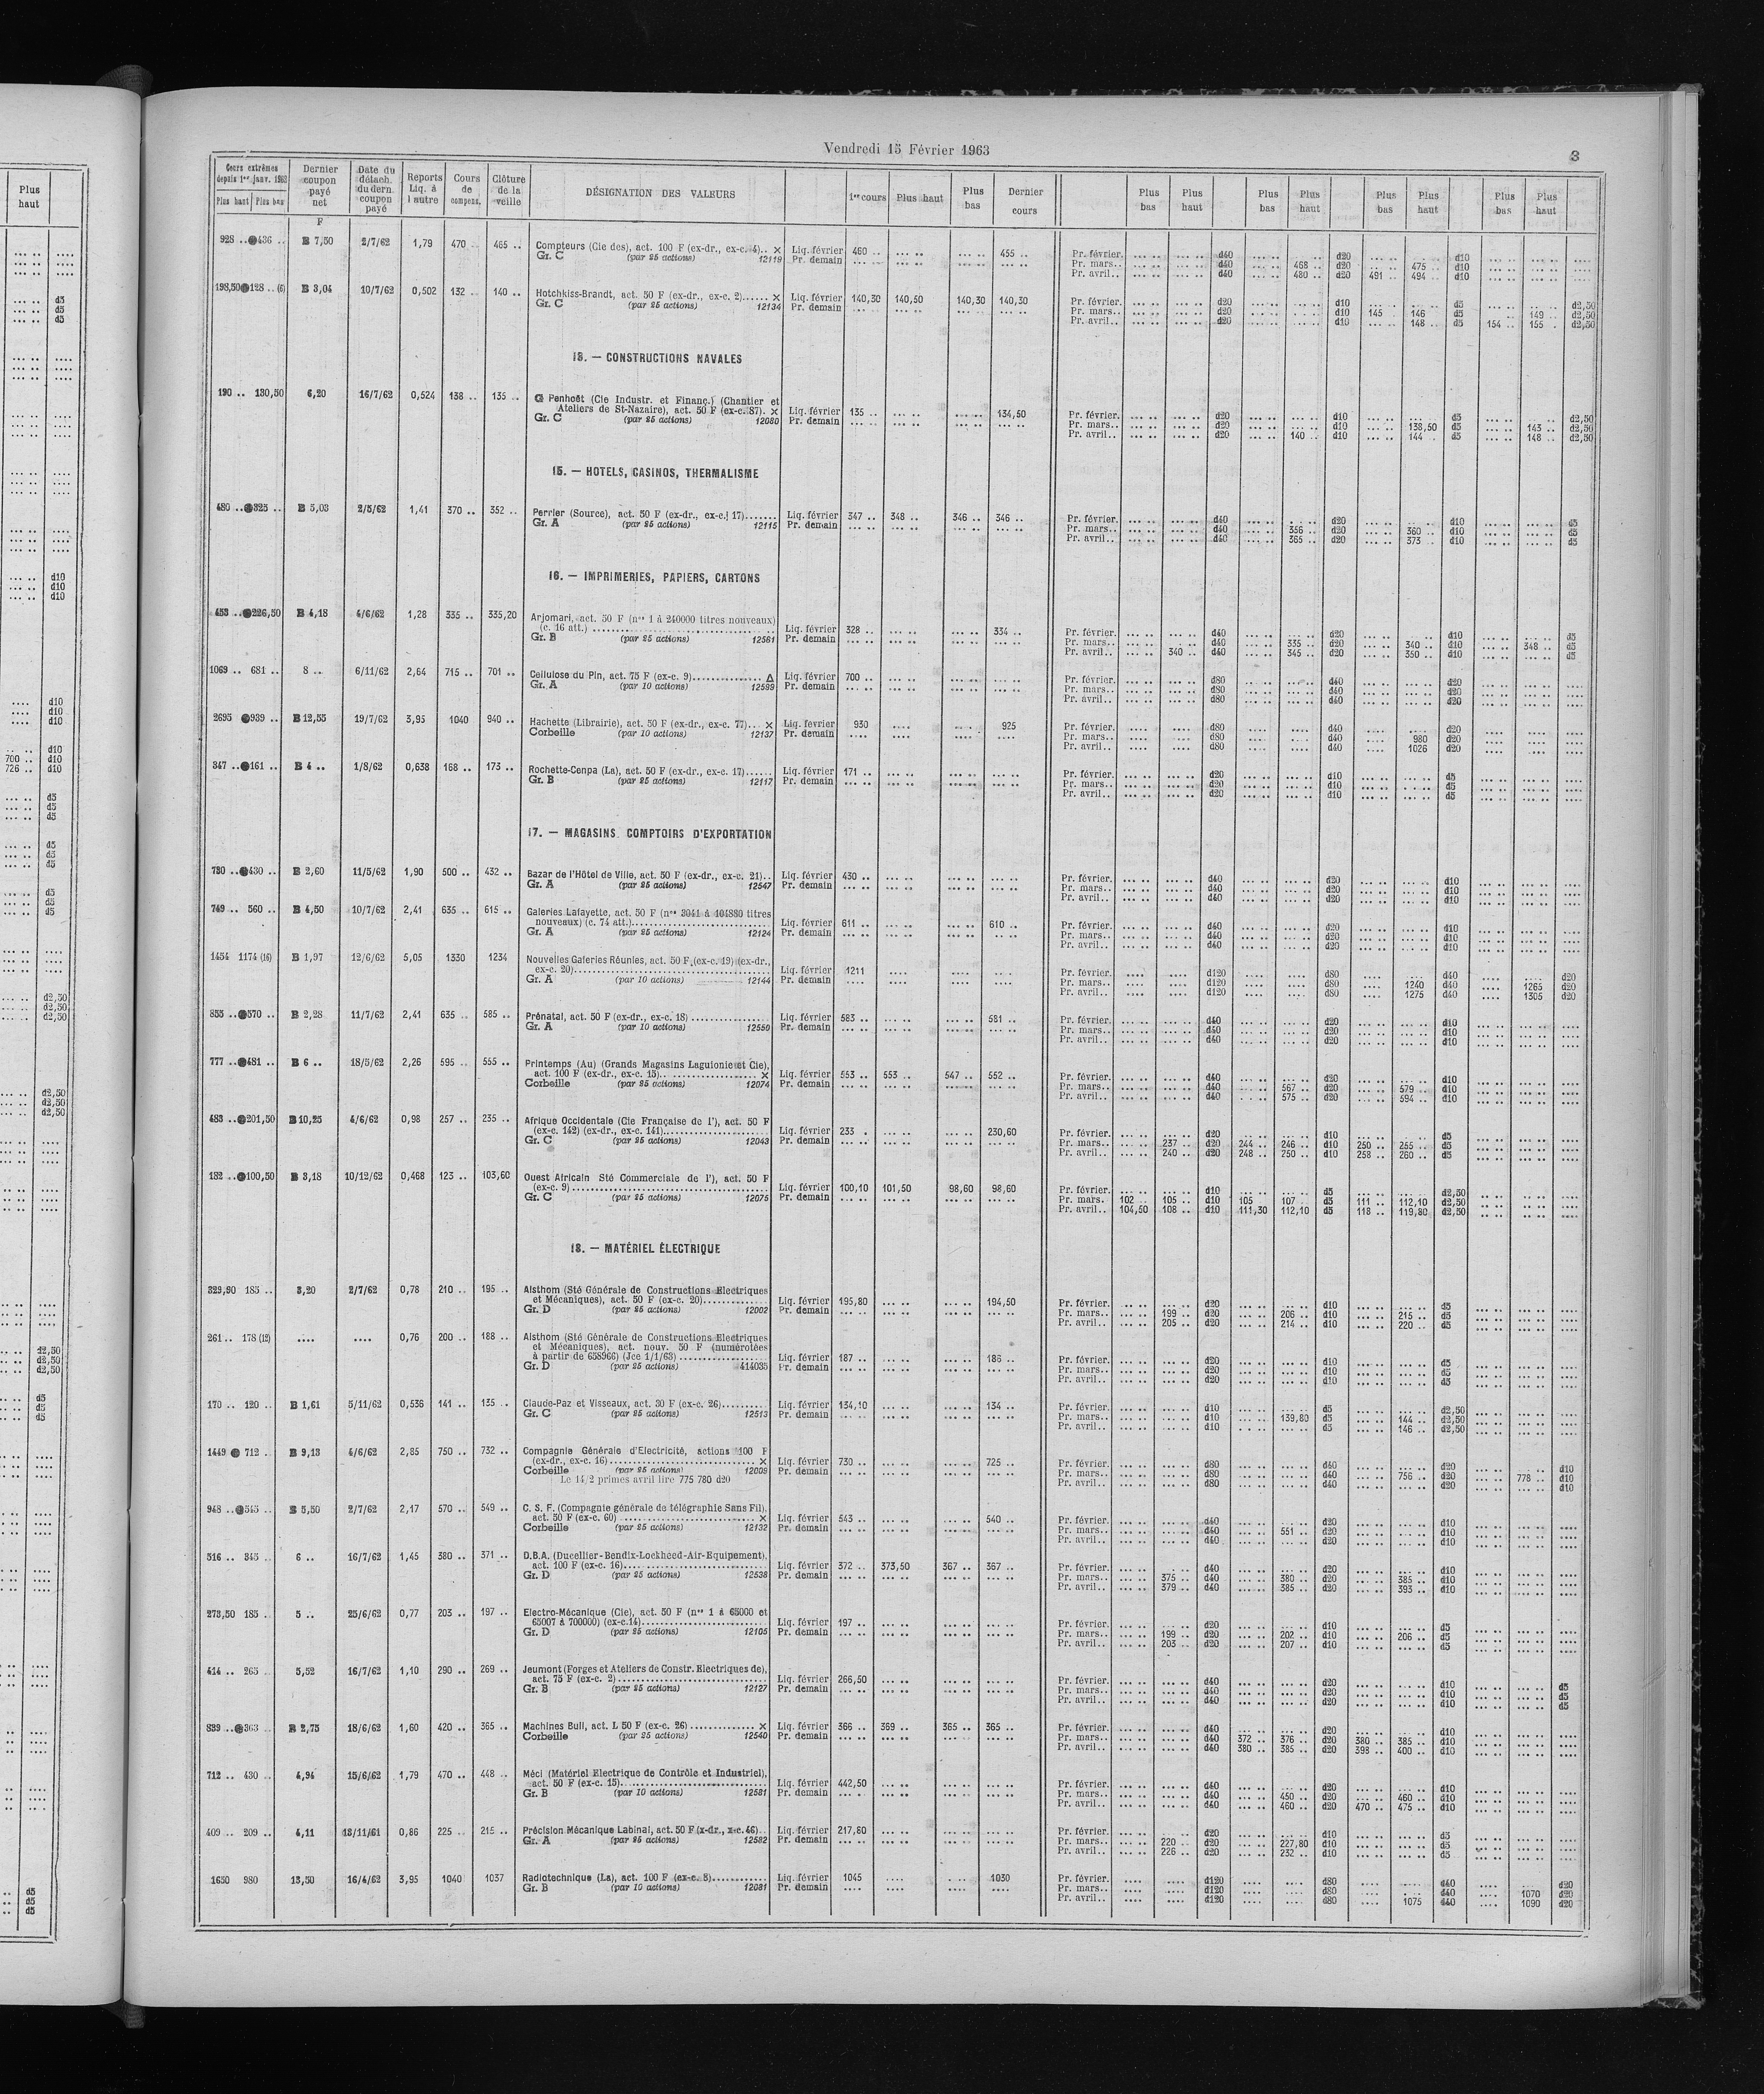 Vendredi 15 Février 1963
3
Cours extrêmes depuis 1er janv. 1962 Plus haut Plus bas Dernier coupon payé net Date du détach. du dern. coupon payé Reports Liq. à l'autre Cours de compens. Clôture de la veille DÉSIGNATION DES VALEURS 1er cours Plus haut Plus bas Dernier cours Plus bas Plus haut Plus bas Plus haut Plus bas Plus haut Plus bas Plus haut
F
928 .. 436 .. B 7,50 2/7/62 1,79 470 .. 465 .. Compteurs (Cie des), act. 100 F (ex-dr., ex-c. 4).. × Liq. février 460 .. 455 .. Pr. février. d40 d20 d10
Gr. C (par 25 actions) 12119 Pr. demain Pr. mars.. d40 468 .. d20 475 .. d10
Pr. avril.. d40 480 .. d20 491 494 .. d10
198,50 128 .. (6) B 3,04 10/7/62 0,502 132 .. 140 .. Hotchkiss-Brandt, act. 50 F (ex-dr., ex-c. 2)...... × Liq. février 140,30 140,50 140,30 140,30 Pr. février. d20 d10 d5 d2,50
Gr. C (par 25 actions) 12134 Pr. demain Pr. mars.. d20 d10 145 .. 146 d5 149 .. d2,50
Pr. avril.. d20 d10 148 .. d5 154 .. 155 . d2,50
13. — CONSTRUCTIONS NAVALES
190 .. 130,50 6,20 16/7/62 0,524 138 .. 135 .. Penhoët (Cie Industr. et Financ.) (Chantier et
Ateliers de St-Nazaire), act. 50 F (ex-c. 87). × Liq. février 135 .. 134,50 Pr. février. d20 d10 d5 d2,50
Gr. C (par 25 actions) 12080 Pr. demain Pr. mars.. d20 d10 138,50 d5 143 .. d2,50
Pr. avril.. d20 140 .. d10 144 .. d5 148 .. d2,50
15. — HOTELS, CASINOS, THERMALISME
480 .. 325 .. B 5,03 2/5/62 1,41 370 .. 352 .. Perrier (Source), act. 50 F (ex-dr., ex-c. 17)....... Liq. février 347 .. 348 .. 346 .. 346 .. Pr. février. d40 d20 d10 d5
Gr. A (par 25 actions) 12115 Pr. demain Pr. mars.. d40 356 .. d20 360 .. d10 d5
Pr. avril.. d40 365 .. d20 373 .. d10 d5
16. — IMPRIMERIES, PAPIERS, CARTONS
453 .. 226,50 B 4,18 4/6/62 1,28 335 .. 335,20 Arjomari, act. 50 F (nos 1 à 240000 titres nouveaux)
(c. 16 att.) Liq. février 328 .. 334 .. Pr. février. d40 d20 d10 d5
Gr. B (par 25 actions) 12581 Pr. demain Pr. mars.. d40 335 .. d20 340 .. d10 348 .. d5
Pr. avril.. 340 .. d40 345 .. d20 350 .. d10 d5
1069 .. 681 .. 8 .. 6/11/62 2,64 715 .. 701 .. Cellulose du Pin, act. 75 F (ex-c. 9).............. Δ Liq. février 700 .. Pr. février. d80 d40 d20
Gr. A (par 10 actions) 12599 Pr. demain Pr. mars.. d80 d40 d20
Pr. avril.. d80 d40 d20
2695 939 .. B 12,55 19/7/62 3,95 1040 940 .. Hachette (Librairie), act. 50 F (ex-dr., ex-c. 77)... × Liq. février 930 925 Pr. février. d80 d40 d20
Corbeille (par 10 actions) 12137 Pr. demain Pr. mars.. d80 d40 980 d20
Pr. avril.. d80 d40 1026 d20
347 .. 161 .. B 4 .. 1/8/62 0,638 168 .. 173 .. Rochette-Cenpa (La), act. 50 F (ex-dr., ex-c. 17)...... Liq. février 171 .. Pr. février. d20 d10 d5
Gr. B (par 25 actions) 12117 Pr. demain Pr. mars.. d20 d10 d5
Pr. avril.. d20 d10 d5
17. — MAGASINS COMPTOIRS D'EXPORTATION
730 .. 430 .. B 2,60 11/5/62 1,90 500 .. 432 .. Bazar de l'Hôtel de Ville, act. 50 F (ex-dr., ex-c. 21).. Liq. février 430 .. Pr. février. d40 d20 d10
Gr. A (par 25 actions) 12547 Pr. demain Pr. mars.. d40 d20 d10
Pr. avril.. d40 d20 d10
749 .. 560 .. B 4,50 10/7/62 2,41 635 .. 615 .. Galeries Lafayette, act. 50 F (nos 3041 à 404880 titres
nouveaux) (c. 74 att.) Liq. février 611 .. 610 .. Pr. février. d40 d20 d10
Gr. A (par 25 actions) 12124 Pr. demain Pr. mars.. d40 d20 d10
Pr. avril.. d40 d20 d10
1454 1174 (16) B 1,97 12/6/62 5,05 1330 1234 Nouvelles Galeries Réunies, act. 50 F (ex-c. 19) (ex-dr.,
ex-c. 20) Liq. février 1211 Pr. février. d120 d80 d40 d20
Gr. A (par 10 actions) 12144 Pr. demain Pr. mars.. d120 d80 1240 d40 1265 d20
Pr. avril.. d120 d80 1275 d40 1305 d20
855 .. 570 .. B 2,28 11/7/62 2,41 635 .. 585 .. Prénatal, act. 50 F (ex-dr., ex-c. 18) Liq. février 583 .. 581 .. Pr. février. d40 d20 d10
Gr. A (par 10 actions) 12550 Pr. demain Pr. mars.. d40 d20 d10
Pr. avril.. d40 d20 d10
777 .. 481 .. B 6 .. 18/5/62 2,26 595 .. 555 .. Printemps (Au) (Grands Magasins Laguionie et Cie),
act. 100 F (ex-dr., ex-c. 15) × Liq. février 553 .. 553 .. 547 .. 552 .. Pr. février. d40 d20 d10
Corbeille (par 25 actions) 12074 Pr. demain Pr. mars.. d40 567 .. d20 579 .. d10
Pr. avril.. d40 575 .. d20 594 .. d10
483 .. 201,50 B 10,25 4/6/62 0,98 257 .. 235 .. Afrique Occidentale (Cie Française de l'), act. 50 F
(ex-c. 142) (ex-dr., ex-c. 141) Liq. février 233 . 230,60 Pr. février. d20 d10 d5
Gr. C (par 25 actions) 12043 Pr. demain Pr. mars.. 237 .. d20 244 .. 246 .. d10 250 .. 255 .. d5
Pr. avril.. 240 .. d20 248 .. 250 .. d10 258 .. 260 .. d5
182 .. 100,50 B 3,18 10/12/62 0,468 123 .. 103,60 Ouest Africain Sté Commerciale de l'), act. 50 F
(ex-c. 9) Liq. février 100,10 101,50 98,60 98,60 Pr. février. d10 d5 d2,50
Gr. C (par 25 actions) 12075 Pr. demain Pr. mars. 102 .. 105 .. d10 105 107 d5 111 .. 112,10 d2,50
Pr. avril.. 104,50 108 .. d10 111,30 112,10 d5 118 .. 119,80 d2,50
18. — MATÉRIEL ÉLECTRIQUE
329,90 185 .. 3,20 2/7/62 0,78 210 .. 195 .. Alsthom (Sté Générale de Constructions Electriques
et Mécaniques), act. 50 F (ex-c. 20) Liq. février 195,80 194,50 Pr. février. d20 d10 d5
Gr. D (par 25 actions) 12002 Pr. demain Pr. mars.. 199 .. d20 206 .. d10 215 .. d5
Pr. avril.. 205 .. d20 214 .. d10 220 .. d5
261 .. 178 (12) .... .... 0,76 200 .. 188 .. Alsthom (Sté Générale de Constructions Electriques
et Mécaniques), act. nouv. 50 F (numérotées
à partir de 658966) (Jce 1/1/63) Liq. février 187 .. 186 .. Pr. février. d20 d10 d5
Gr. D (par 25 actions) 414035 Pr. demain Pr. mars.. d20 d10 d5
Pr. avril.. d20 d10 d5
170 .. 120 .. B 1,61 5/11/62 0,536 141 .. 135 .. Claude-Paz et Visseaux, act. 30 F (ex-c. 26) Liq. février 134,10 134 .. Pr. février. d10 d5 d2,50
Gr. C (par 25 actions) 12513 Pr. demain Pr. mars.. d10 139,80 d5 144 .. d2,50
Pr. avril.. d10 d5 146 .. d2,50
1449 712 . B 9,13 4/6/62 2,85 750 .. 732 .. Compagnie Générale d'Electricité, actions 100 F
(ex-dr., ex-c. 16) × Liq. février 730 .. 725 .. Pr. février. d80 d40 d20 d10
Corbeille (par 25 actions) 12009 Pr. demain Pr. mars.. d80 d40 756 .. d20 778 .. d10
Le 14/2 primes avril lire 775 780 d20 Pr. avril.. d80 d40 d20 d10
948 .. 545 .. B 5,50 2/7/62 2,17 570 .. 549 .. C. S. F. (Compagnie générale de télégraphie Sans Fil),
act. 50 F (ex-c. 60) × Liq. février 543 .. 540 .. Pr. février. d40 d20 d10
Corbeille (par 25 actions) 12132 Pr. demain Pr. mars.. d40 551 .. d20 d10
Pr. avril.. d40 d20 d10
516 .. 345 .. 6 .. 16/7/62 1,45 380 .. 371 .. D.B.A. (Ducellier-Bendix-Lockheed-Air-Equipement),
act. 100 F (ex-c. 16) Liq. février 372 .. 373,50 367 .. 367 .. Pr. février. d40 d20 d10
Gr. D (par 25 actions) 12538 Pr. demain Pr. mars.. 375 .. d40 380 .. d20 385 .. d10
Pr. avril.. 379 .. d40 385 .. d20 393 .. d10
273,50 185 .. 5 .. 25/6/62 0,77 203 .. 197 .. Electro-Mécanique (Cie), act. 50 F (nos 1 à 65000 et
65007 à 700000) (ex-c.14) Liq. février 197 .. Pr. février. d20 d10 d5
Gr. D (par 25 actions) 12105 Pr. demain Pr. mars.. 199 .. d20 202 .. d10 206 .. d5
Pr. avril.. 203 .. d20 207 .. d10 d5
414 .. 265 .. 5,52 16/7/62 1,10 290 .. 269 .. Jeumont (Forges et Ateliers de Constr. Electriques de),
act. 75 F (ex-c. 2) Liq. février 266,50 Pr. février. d40 d20 d10 d5
Gr. B (par 25 actions) 12127 Pr. demain Pr. mars.. d40 d20 d10 d5
Pr. avril.. d40 d20 d10 d5
839 .. 363 .. B 2,75 18/6/62 1,60 420 .. 365 .. Machines Bull, act. L 50 F (ex-c. 26) × Liq. février 366 .. 369 .. 365 .. 365 .. Pr. février. d40 d20 d10
Corbeille (par 25 actions) 12540 Pr. demain Pr. mars.. d40 372 .. 376 .. d20 380 .. 385 .. d10
Pr. avril.. d40 380 .. 385 .. d20 398 .. 400 .. d10
712 .. 430 .. 4,94 15/6/62 1,79 470 .. 448 .. Méci (Matériel Electrique de Contrôle et Industriel),
act. 50 F (ex-c. 15) Liq. février 442,50 Pr. février. d40 d20 d10
Gr. B (par 10 actions) 12581 Pr. demain Pr. mars.. d40 450 .. d20 460 .. d10
Pr. avril.. d40 460 .. d20 470 .. 475 .. d10
409 .. 209 .. 4,11 13/11/61 0,86 225 .. 215 .. Précision Mécanique Labinal, act. 50 F (x-dr., x-c. 46).. Liq. février 217,80 Pr. février. d20 d10 d5
Gr. A (par 25 actions) 12582 Pr. demain Pr. mars.. 220 .. d20 227,80 d10 d5
Pr. avril.. 226 .. d20 232 .. d10 d5
1650 980 13,50 16/4/62 3,95 1040 1037 Radiotechnique (La), act. 100 F (ex-c. 8) Liq. février 1045 1030 Pr. février. d120 d80 d40 d20
Gr. B (par 10 actions) 12081 Pr. demain Pr. mars.. d120 d80 d40 1070 d20
Pr. avril.. d120 d80 1075 d40 1090 d20